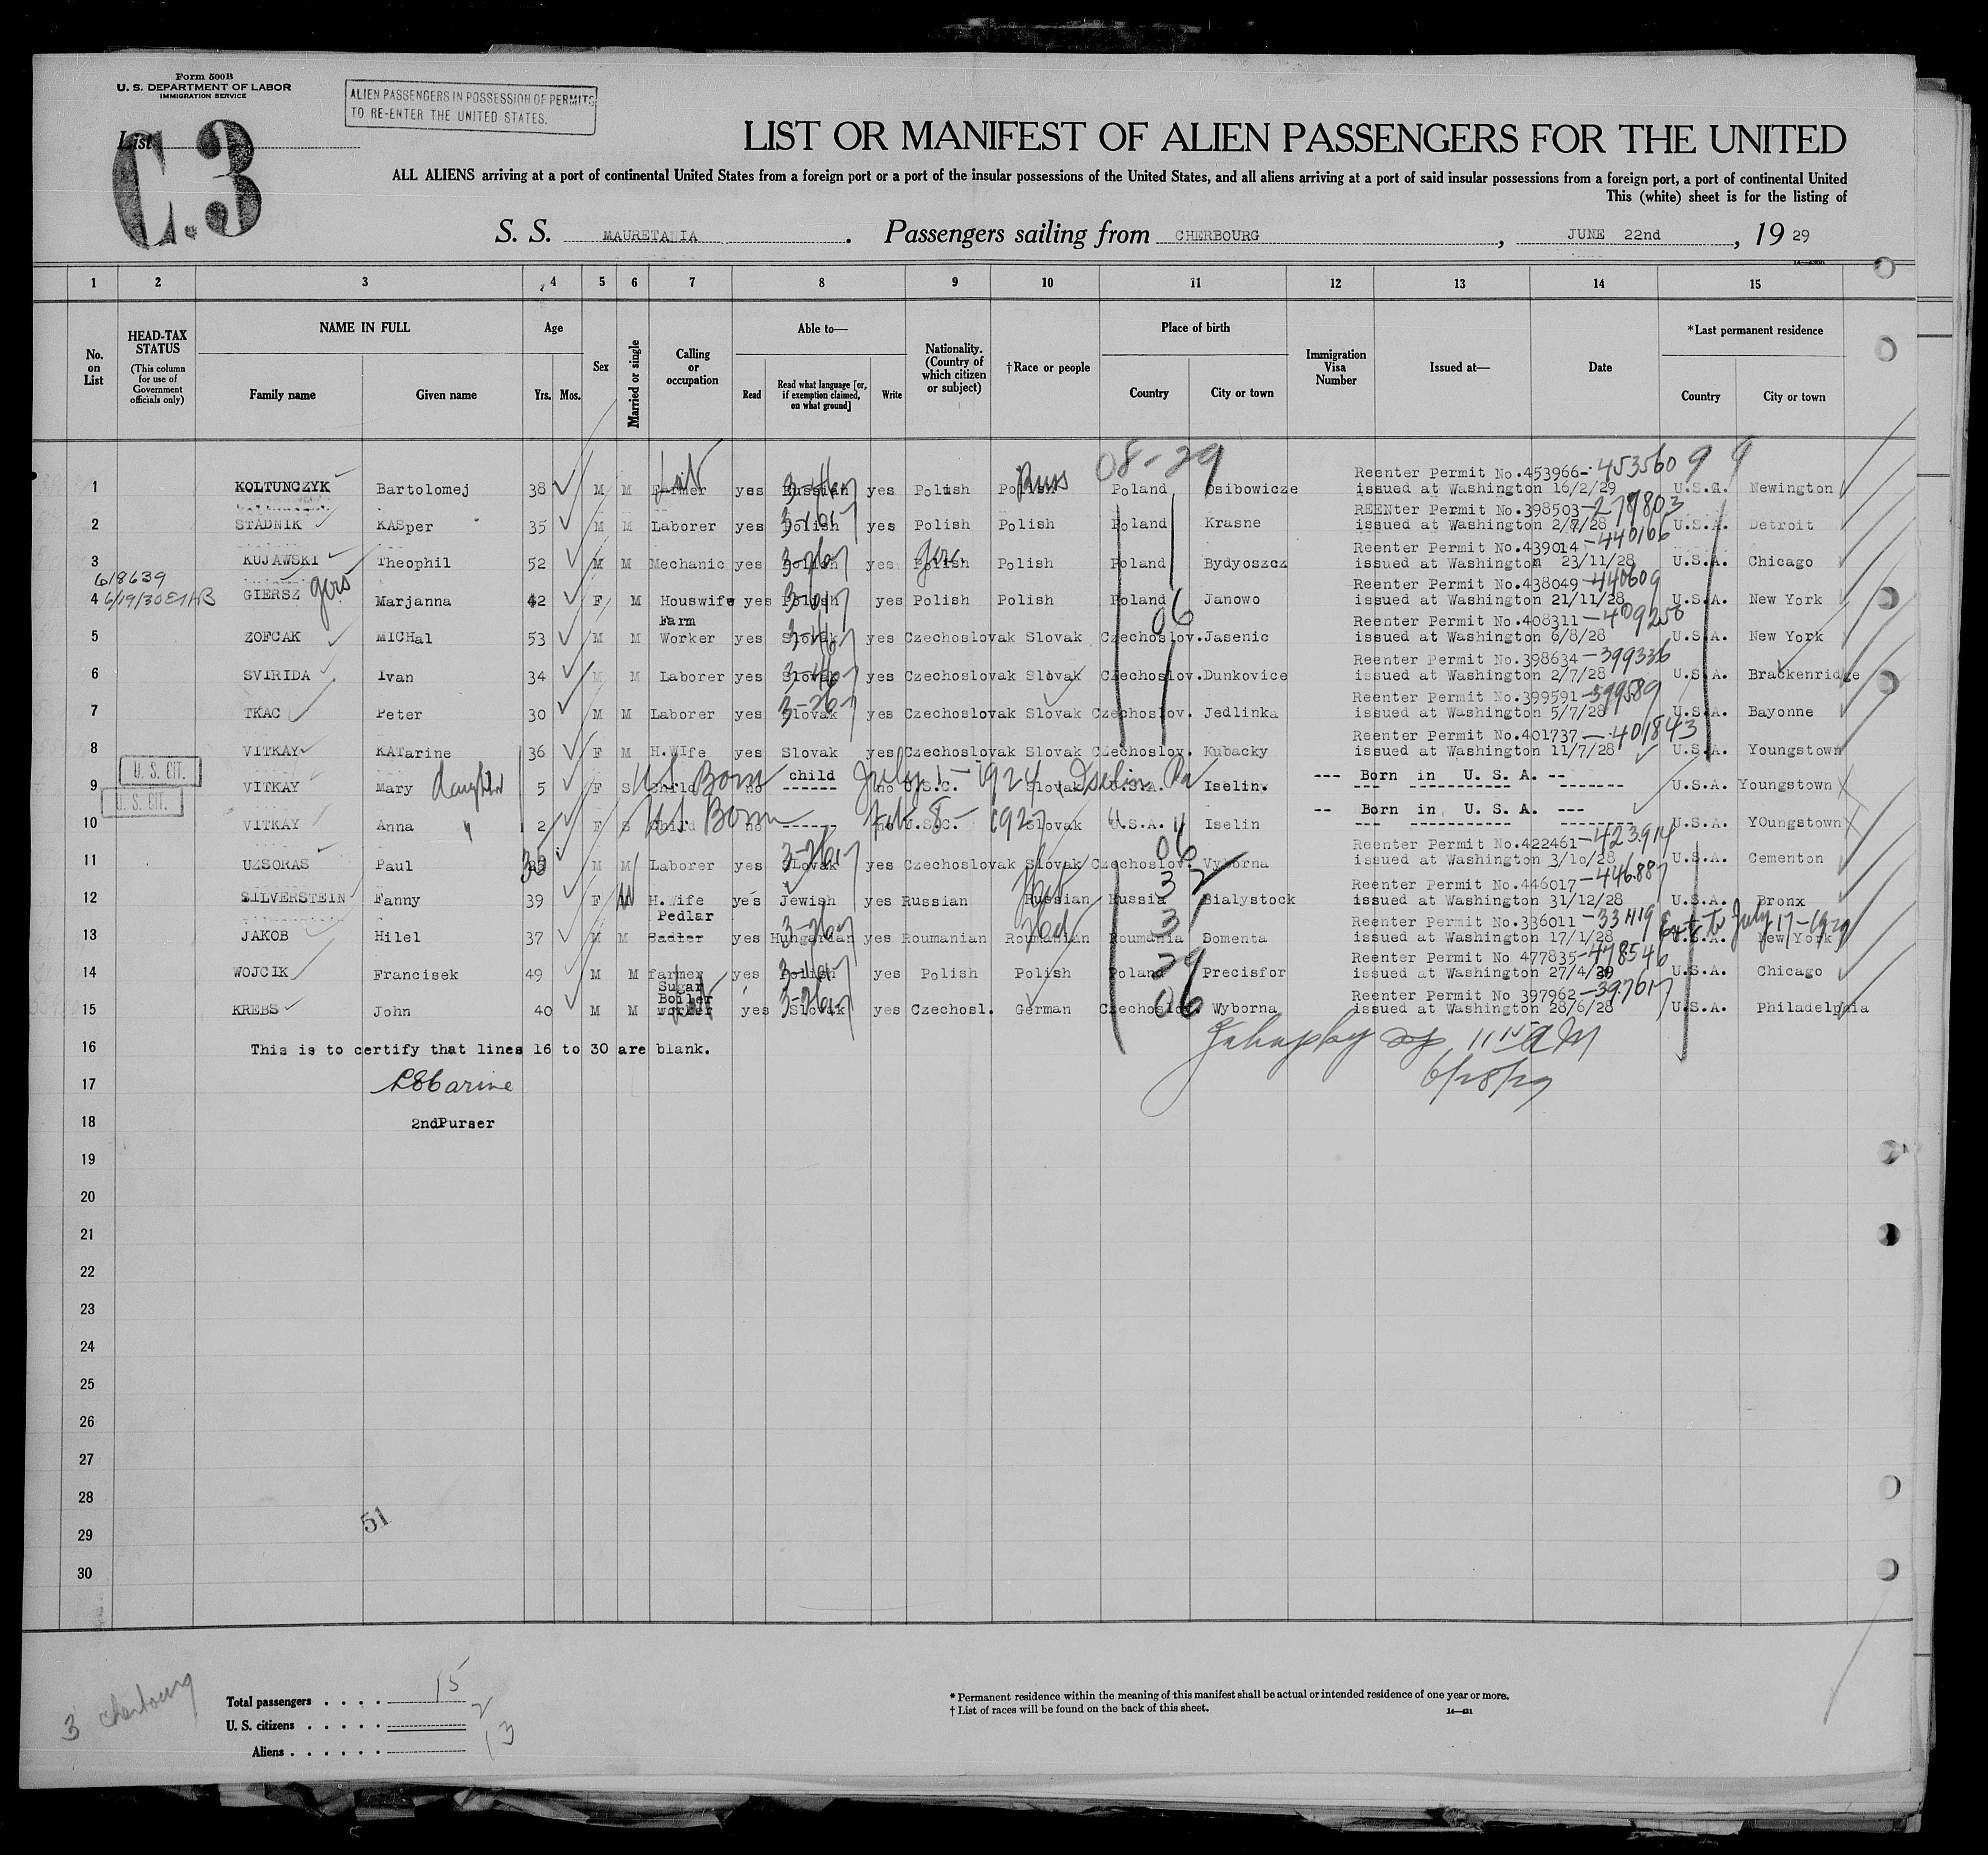 Form 500B
U. S. DEPARTMENT OF LABOR
IMMIGRATION SERVICE
ALIEN PASSENGERS IN POSSESSION OF PERMITS
TO RE-ENTER THE UNITED STATES.
List
C.3
LIST OR MANIFEST OF ALIEN PASSENGERS FOR THE UNITED
ALL ALIENS arriving at a port of continental United States from a foreign port or a port of the insular possessions of the United States, and all aliens arriving at a port of said insular possessions from a foreign port, a port of continental United
This (white) sheet is for the listing of
S. S. MAURETANIA . Passengers sailing from CHERBOURG , JUNE 22nd , 19 29
1 2 3 4 5 6 7 8 9 10 11 12 13 14 15
No. on List
HEAD-TAX STATUS
(This column for use of Government officials only)
NAME IN FULL
Family name Given name
Age
Yrs. Mos.
Sex
Married or single
Calling or occupation
Able to—
Read Read what language [or, if exemption claimed, on what ground] Write
Nationality. (Country of which citizen or subject)
†Race or people
Place of birth
Country City or town
Immigration Visa Number
Issued at—
Date
*Last permanent residence
Country City or town
08-29
Reenter Permit No.453966-453560 9 9
1 KOLTUNCZYK Bartolomej 38 M M Farmer yes Russian yes Polish Polish Russ Poland Osibowicze issued at Washington 16/2/29 U.S.A. Newington
REENter Permit No.398503-
2 STADNIK KASper 35 M M Laborer yes Polish yes Polish Polish Poland Krasne issued at Washington 2/7/28 U.S.A. Detroit
Reenter Permit No.439014-440106
3 KUJAWSKI Theophil 52 M M Mechanic yes Polish yes Polish Ger. Polish Poland Bydyoszcz issued at Washington 23/11/28 U.S.A. Chicago
6/8639
Reenter Permit No.438049-440609
4 GIERSZ Giers Marjanna 42 F M Houswife yes Polish yes Polish Polish Poland Janowo issued at Washington 21/11/28 U.S.A. New York
Farm 06 Reenter Permit No.408311-409250
5 ZOFCAK MICHal 53 M M Worker yes Slovak yes Czechoslovak Slovak Czechoslov. Jasenic issued at Washington 6/8/28 U.S.A. New York
Reenter Permit No.398634-399336
6 SVIRIDA Ivan 34 M M Laborer yes Slovak yes Czechoslovak Slovak Czechoslov. Dunkovice issued at Washington 2/7/28 U.S.A. Brackenridge
Reenter Permit No.399591-399589
7 TKAC Peter 30 M M Laborer yes Slovak yes Czechoslovak Slovak Czechoslov. Jedlinka issued at Washington 5/7/28 U.S.A. Bayonne
Reenter Permit No.401737-401843
8 VITKAY KATarine 36 F M H.WIfe yes Slovak yes Czechoslovak Slovak Czechoslov. Kubacky issued at Washington 11/7/28 U.S.A. Youngstown
U. S. CIT.
US Born child July 1-1924 Iselin Pa --- Born in U. S. A. --
9 VITKAY Mary daughter 5 F S Child no ------ no U.S.C. Slovak U.S.A. Iselin. U.S.A. Youngstown
U. S. CIT.
US Born Feb 8- 1927 " -- Born in U. S. A. ---
10 VITKAY Anna " 2 F S Child no ------ no U.S.C. Slovak U.S.A. Iselin U.S.A. YOungstown
06 Reenter Permit No.422461-423914
11 UZSORAS Paul M M Laborer yes SLovak yes Czechoslovak Slovak Czechoslov. Vyborna issued at Washington 3/10/28 U.S.A. Cementon
32 Reenter Permit No.446017-446887
12 SILVERSTEIN Fanny 39 F M H.Wife yes Jewish yes Russian Russian Heb Russia Bialystock issued at Washington 31/12/28 U.S.A. Bronx
Pedlar Reenter Permit No.336011-33419 Ext. to July 17-1929
13 JAKOB Hilel 37 M M Sadler yes Hungarian yes Roumanian Roumanian Heb Roumania Somenta issued at Washington 17/1/28 U.S.A. New York
29 Reenter Permit No 477835-478546
14 WOJCIK Francisek 49 M M farmer yes Polish yes Polish Polish Poland Precisfor issued at Washington 27/4/29 U.S.A. Chicago
Sugar Boiler 06 Reenter Permit No 397962-397617
15 KREBS John 40 M M worker yes Slovak yes Czechosl. German Czechoslov. Wyborna issued at Washington 28/6/28 U.S.A. Philadelphia
16 This is to certify that lines 16 to 30 are blank.
6/28/29
17
18 2ndPurser
19
20
21
22
23
24
25
26
27
28
51
29
30
3 cherbourg
Total passengers . . . . 15
U. S. citizens . . . . . 2
Aliens . . . . . . 13
* Permanent residence within the meaning of this manifest shall be actual or intended residence of one year or more.
† List of races will be found on the back of this sheet.
14—431